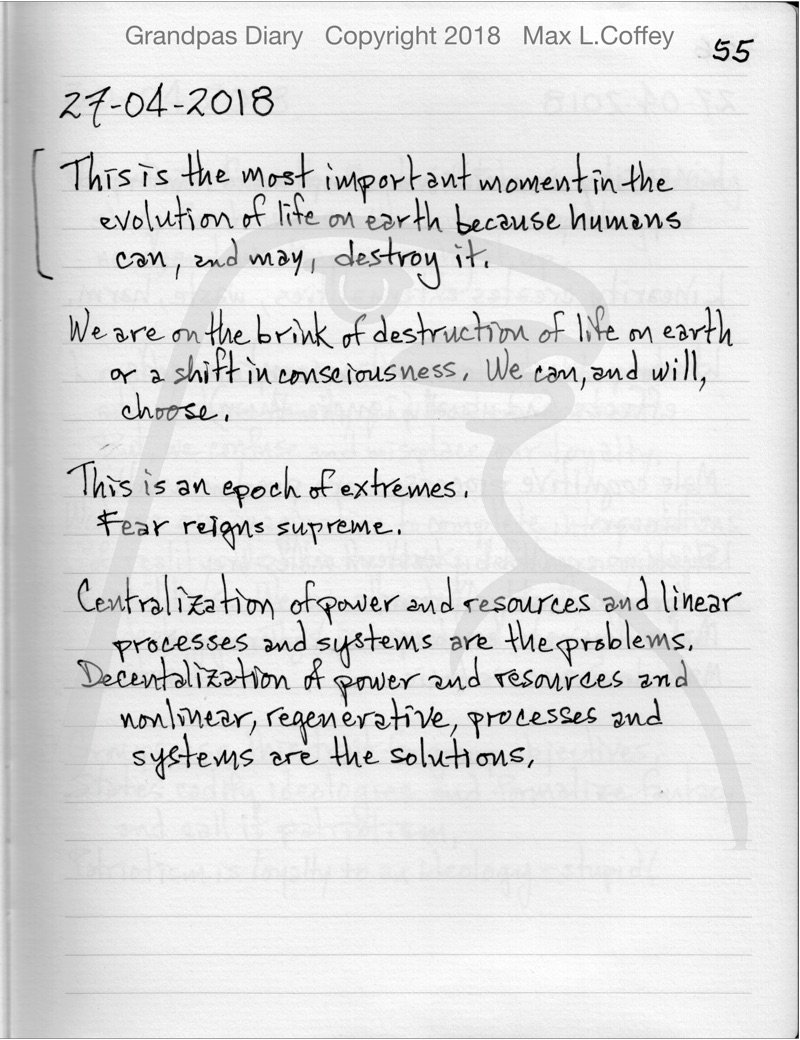 Grandpas Diary Copyright 2018 Max L.Coffey
55
27-04-2018
This is the most important moment in the
evolution of life on earth because humans
can, and may, destroy it.
We are on the brink of destruction of life on earth
or a shift in consciousness. We can, and will,
choose.
This is an epoch of extremes.
Fear reigns supreme.
Centralization of power and resources and linear
processes and systems are the problems.
Decentalization of power and resources and
nonlinear, regenerative, processes and
systems are the solutions.